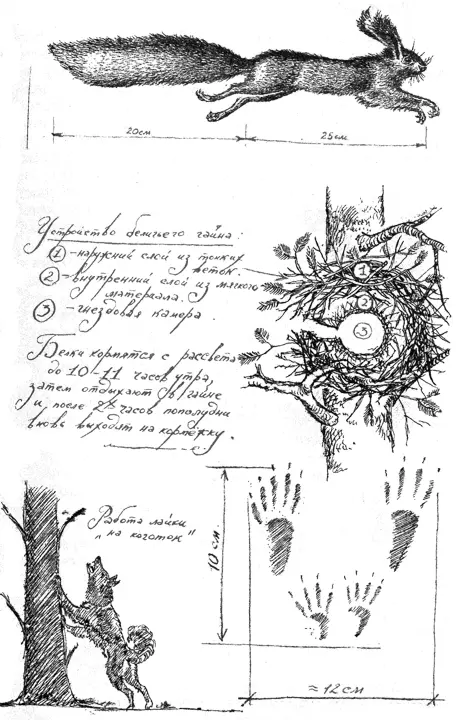 20см
25см
Устройство беличьего гайна:
1 -наружний слой из тонких
веток.
2 -внутренний слой из мягкого
материала.
3 - гнездовая камера.
1
2
3
Белки кормятся с рассвета
до 10-11 часов утра,
затем отдыхают в гайне
и, после 2х часов пополудни
вновь выходят на кормёжку.
Работа лайки
„на коготок"
10 см.
≈12см